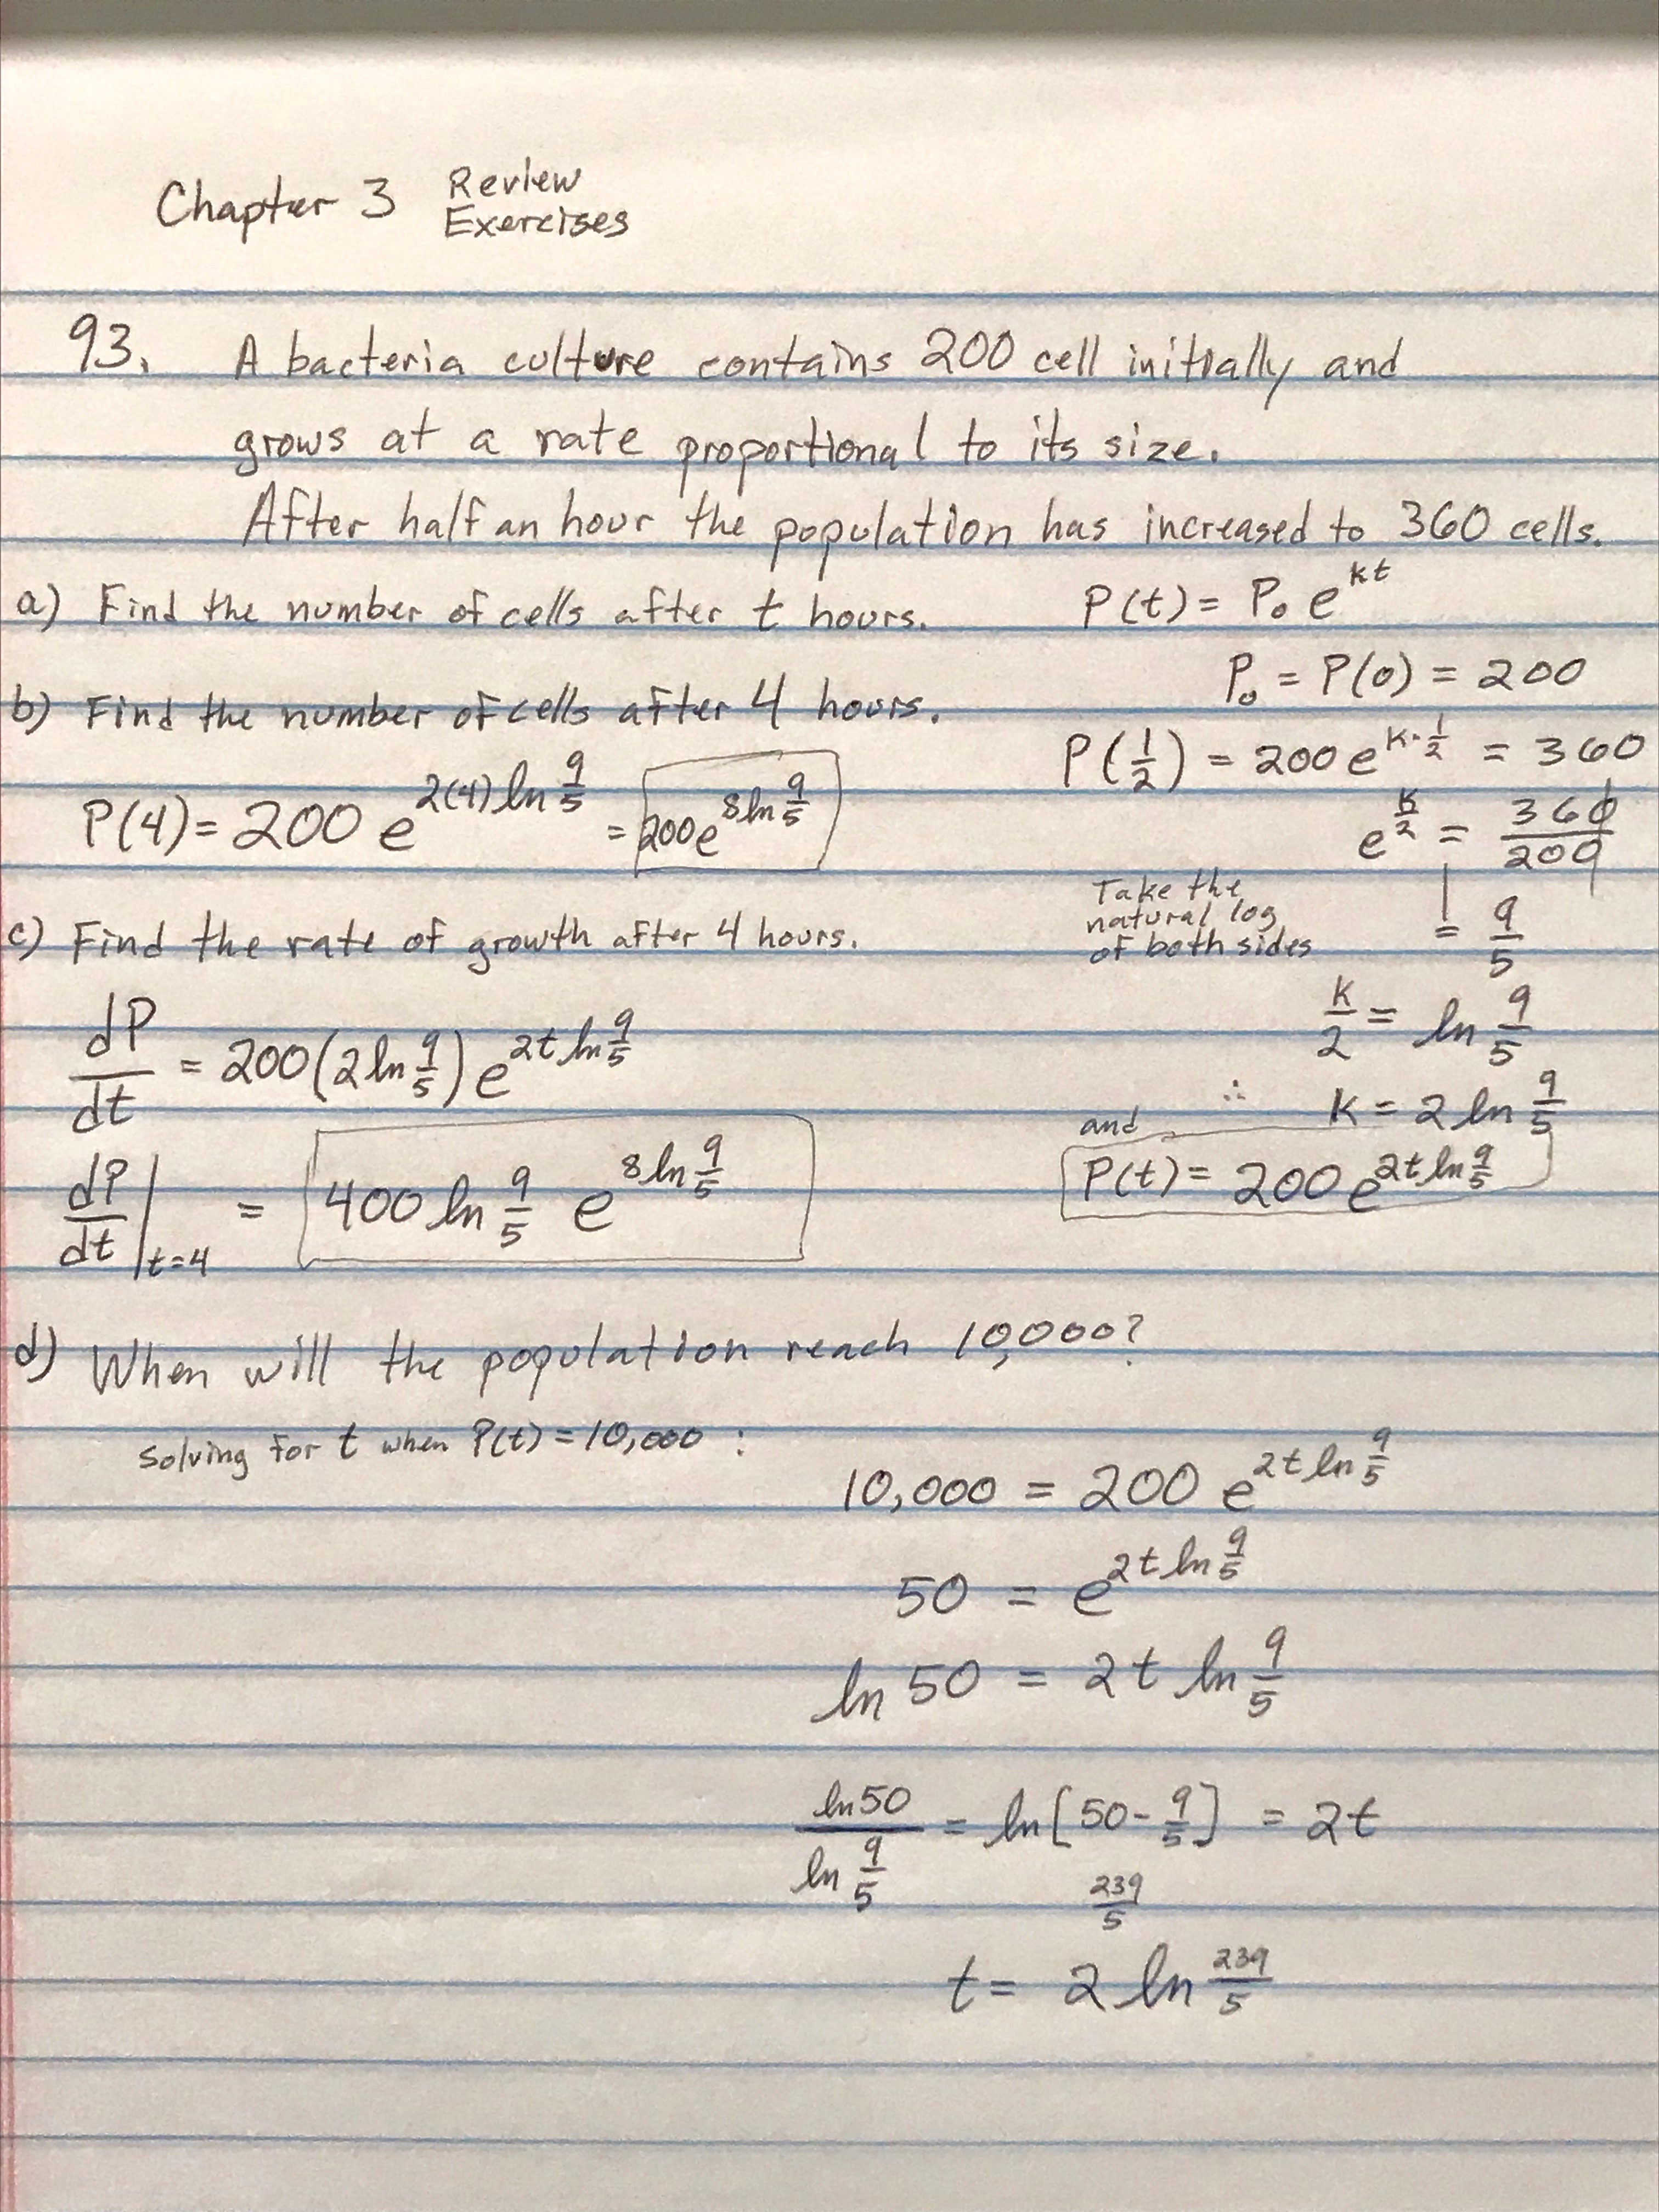 Chapter 3 Review Exercises
93. A bacteria culture contains 200 cell initially and
grows at a rate proportional to its size.
After half an hour the population has increased to 360 cells.
a) Find the number of cells after t hours.
P(t) = P₀ e^(kt)
P₀ = P(0) = 200
P(1/2) = 200 e^(k·1/2) = 360
e^(k/2) = 360/200
= 9/5
Take the
natural log
of both sides
k/2 = ln 9/5
∴ k = 2 ln 9/5
and
P(t) = 200 e^(2t ln 9/5)
b) Find the number of cells after 4 hours.
P(4) = 200 e^(2(4) ln 9/5) = 200 e^(8 ln 9/5)
c) Find the rate of growth after 4 hours.
dP/dt = 200 (2 ln 9/5) e^(2t ln 9/5)
dP/dt |t=4 = 400 ln 9/5 e^(8 ln 9/5)
d) When will the population reach 10,000?
Solving for t when P(t) = 10,000 :
10,000 = 200 e^(2t ln 9/5)
50 = e^(2t ln 9/5)
ln 50 = 2t ln 9/5
ln 50 / ln 9/5 = ln [50 - 9/5] = 2t
239/5
t = 2 ln 239/5